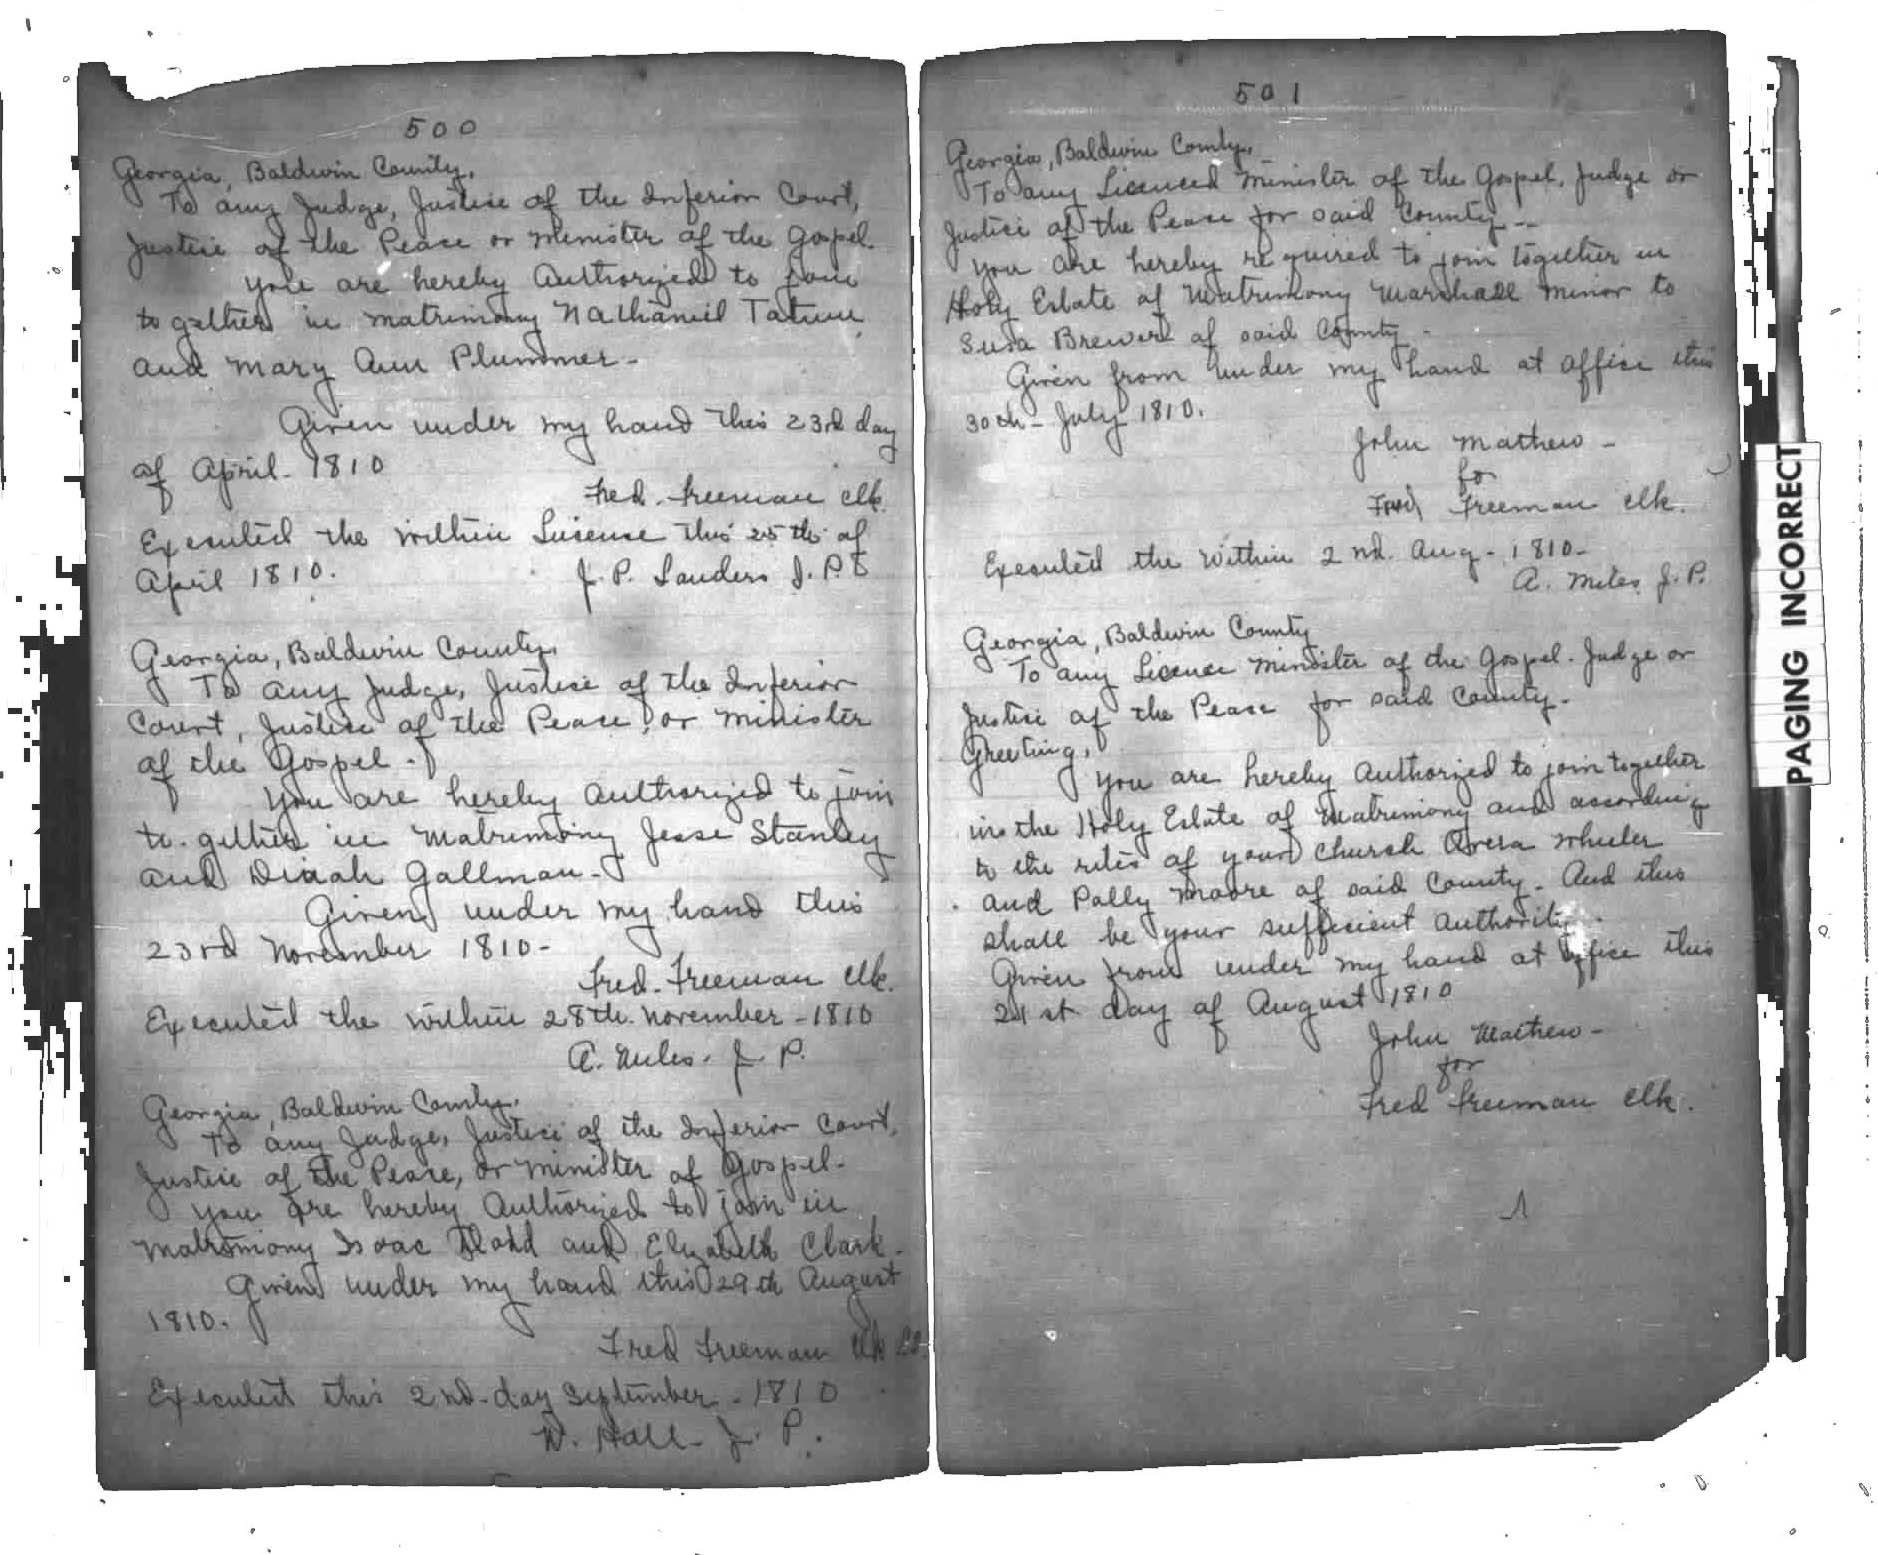 500
Georgia, Baldwin County.
To any Judge, Justice of the Inferior Court,
Justice of the Peace or Minister of the Gospel.
You are hereby Authorized to join
to gether in matrimony Nathaniel Tatum
and Mary Ann Plummer -
Given under my hand this 23rd day
of April - 1810
Fred. Freeman clk.
Executed the within License this 25th of
April 1810.
J. P. Sanders J. P.
Georgia, Baldwin County.
To any Judge, Justice of the Inferior
Court, Justice of the Peace, or Minister
of the Gospel -
You are hereby Authorized to join
to gether in Matrimony Jesse Stanley
and Dinah Gallman -
Given under my hand this
23rd November 1810 -
Fred. Freeman clk.
Executed the within 28th. November - 1810
A. Miles. J. P.
Georgia, Baldwin County.
To any Judge, Justice of the Inferior Court,
Justice of the Peace, or Minister of Gospel -
You are hereby Authorized to join in
Matrimony Isaac and Elizabeth Clark -
Given under my hand this 29th August
1810.
Fred Freeman clk
Executed this 2nd - day September - 1810
W. Hall - J. P.
501
Georgia, Baldwin County.
To any Licenced Minister of the Gospel, Judge or
Justice of the Peace for said County --
You are hereby required to join together in
Holy Estate of Matrimony Marshall Minor to
Susa Brewer of said County -
Given from under my hand at office this
30th - July 1810.
John Mathew -
for
Fred Freeman clk.
Executed the Within 2nd. Aug - 1810 -
A. Miles J. P.
Georgia, Baldwin County
To any Licence Minister of the Gospel. Judge or
Justice of the Peace for said County -
Greeting,
You are hereby Authorized to join together
in the Holy Estate of Matrimony and according
to the rites of your Church Wheeler
and Polly Moore of said County - And this
shall be your sufficient Authority.
Given from under my hand at office this
21st day of August 1810
John Mathew -
for
Fred Freeman clk.
PAGING INCORRECT